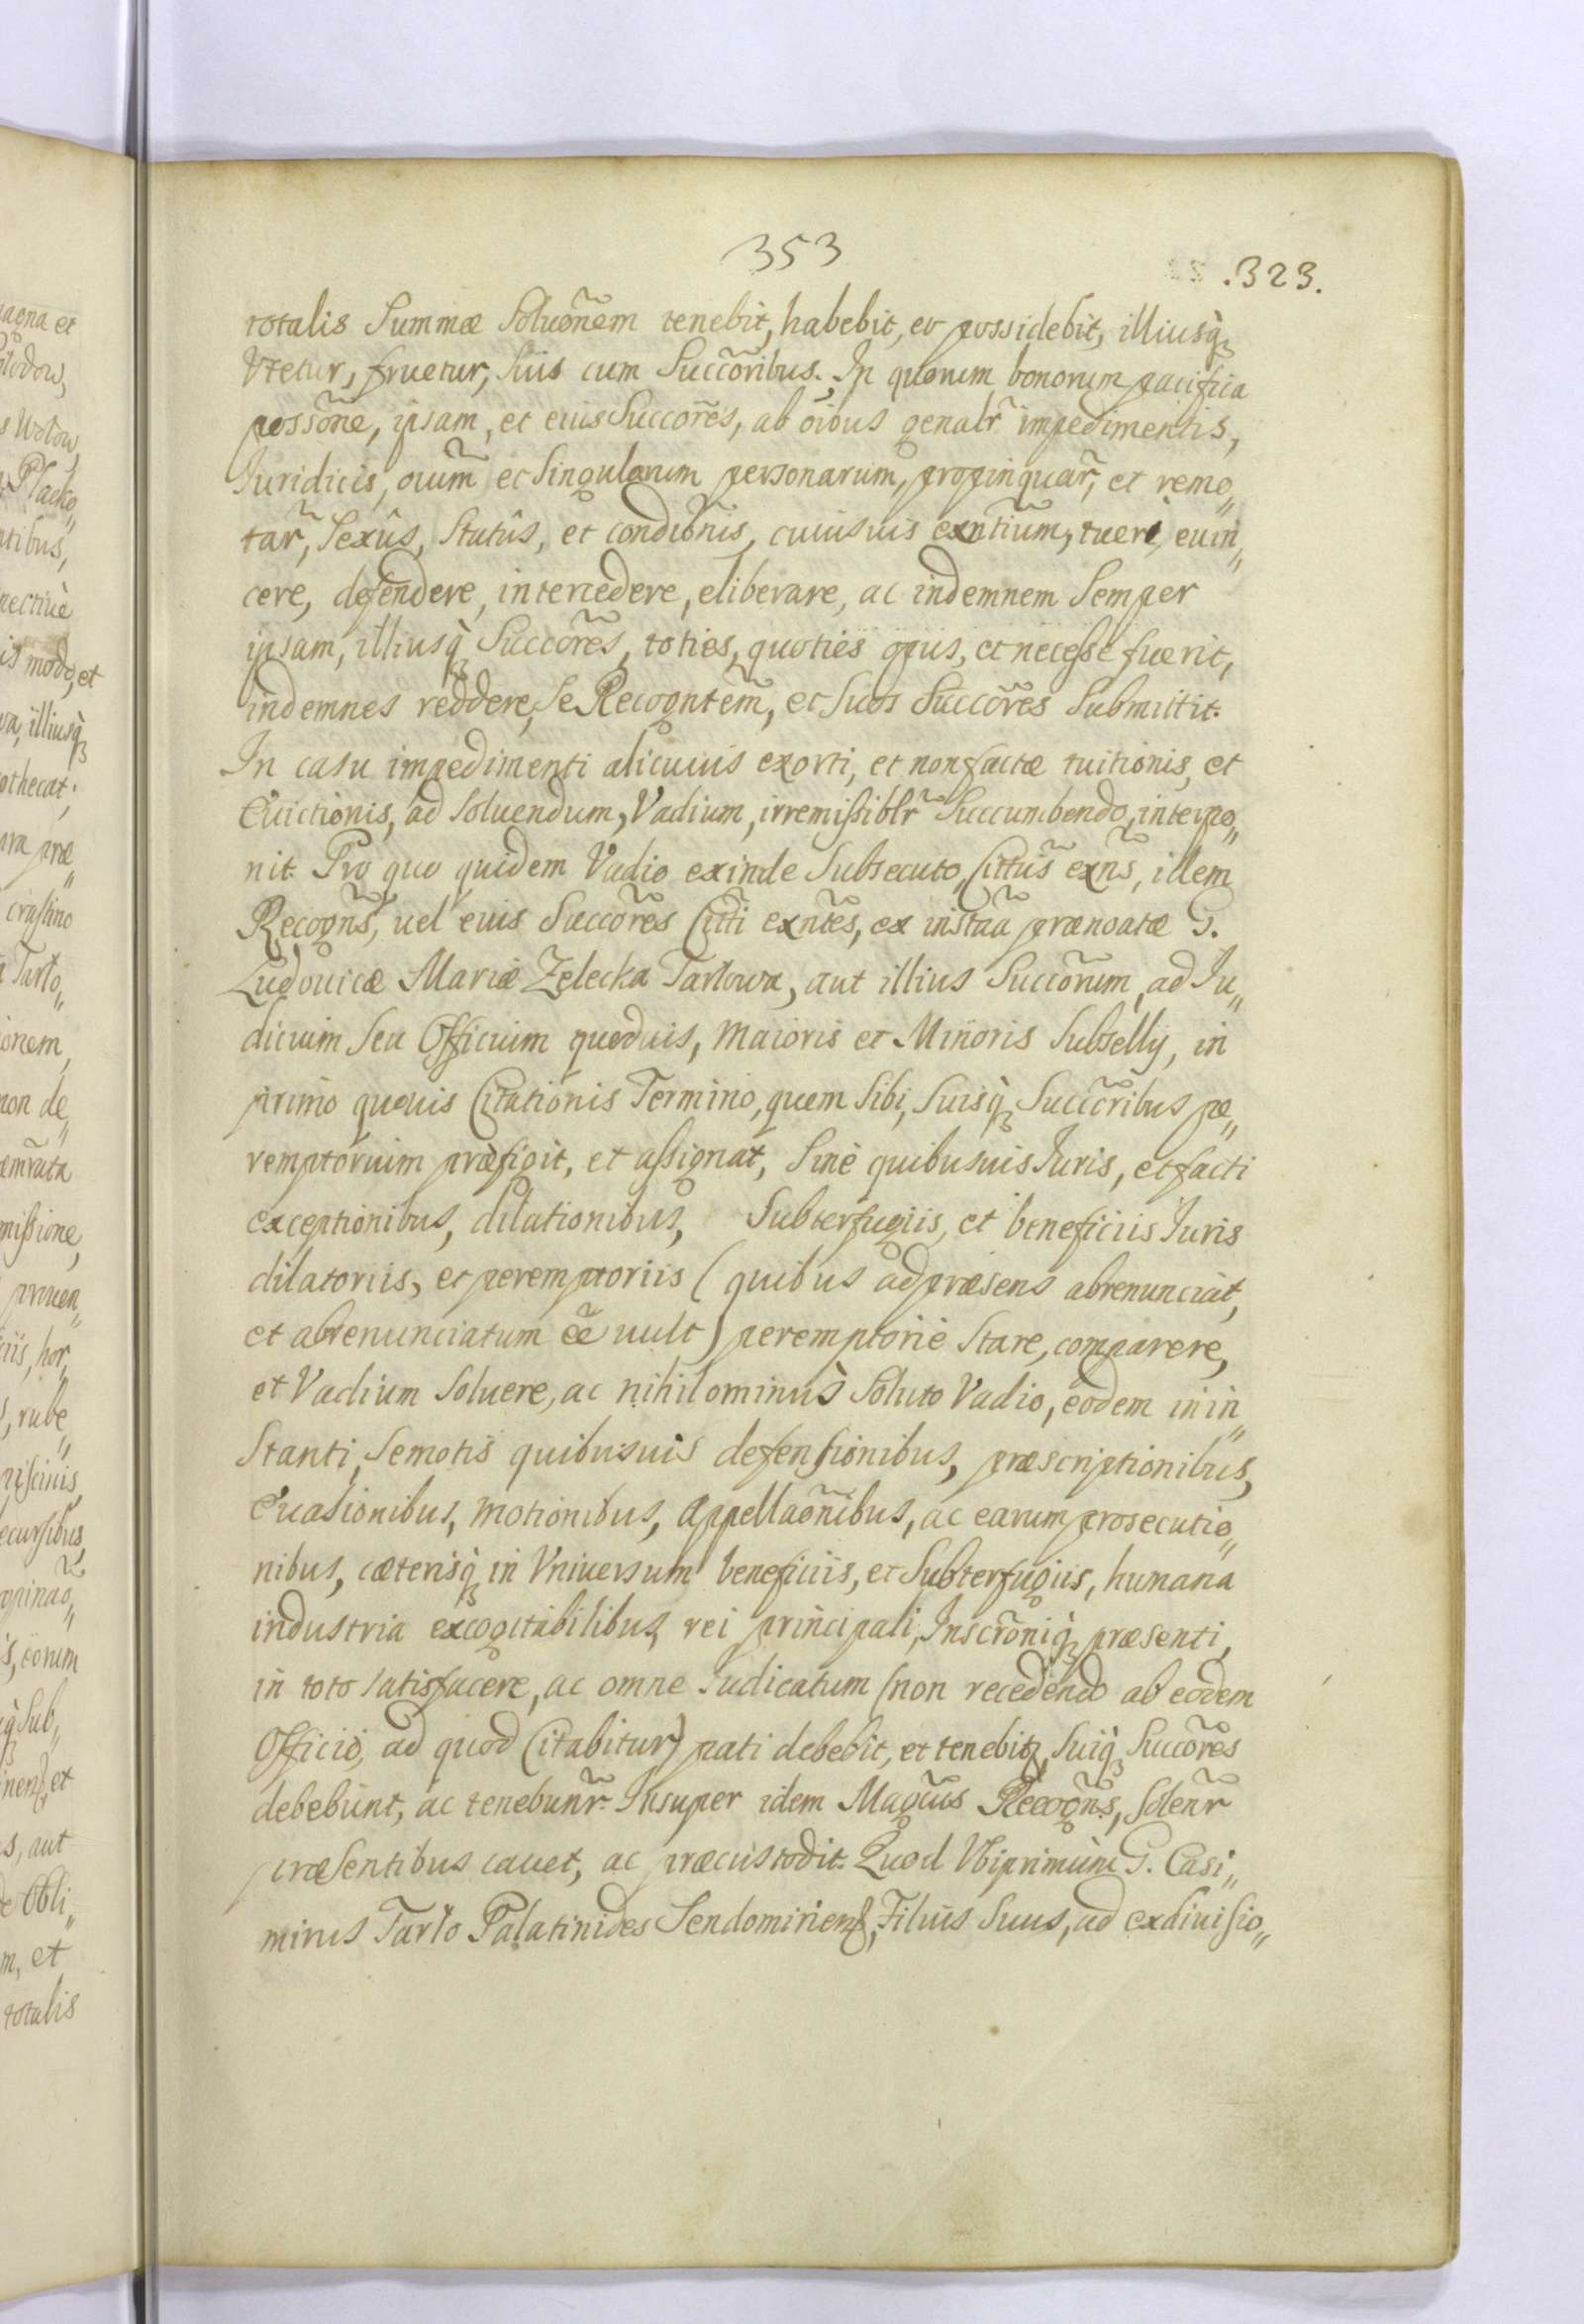 353
.323.
totalis Summæ Soluõnem tenebit, habebit, et possidebit, illiusq̀
Vtetur, fruetur, Suis cum Succõribus. In quorum bonorum pacifica
possõne, ipsam, et eius Succõres, ab oĩbus genalr̃ impedimentis,
Iuridicis, oiũm et Singularum personarum, propinquar̃, et remo„
tar̃, Sexûs, Statûs, et condiõnis, cuiusuis exñtium, tueri, euin„
cere, defendere, intercedere, eliberare, ac indemnem Semper
ipsam, illiusq̀ Succõres, toties, quoties opus, et necesse fuerit,
indemnes reddere, Se Recogntẽm, et Suos Succõres Submittit.
In casu impedimenti alicuius exorti, et non factæ tuitionis, et
Euictionis, ad Soluendum, Vadium, irremissiblr̃ Succumbendo, interpo„
nit. Pro quo quidem Vadio exinde Subsecuto, Cittũs exñs, idem
Recogñs, uel eius Succõres Citti exñtes, ex instãa prænoatæ G.
Ludouicæ Mariæ Zelecka Tarłowa, aut illius Succõrum, ad Iu„
dicium Seu Officium quoduis, Maioris et Minoris Subselly, in
primo quouis Citationis Termino, quem Sibi, Suisq̀ Succõribus pe„
remptorium præfigit, et assignat, Sine quibusuis Iuris, et facti
exceptionibus, dilationibus, Subterfugiis, et beneficiis Iuris
dilatoriis, et peremptoriis (quibus ad præsens abrenunciat,
et abrenunciatum eẽ uult) peremptorie Stare, comparere,
et Vadium Soluere, ac nihilominùs Soluto Vadio, eodem in in„
Stanti, Semotis quibusuis defensionibus, præscriptionibus,
Euasionibus, motionibus, Appellaõnibus, ac earum prosecutio„
nibus, cæterisq̀ in Vniuersum beneficiis, et Subterfugiis, humana
industria excogitabilibus, rei principali, Inscrõniq̀ præsenti,
in toto satisfacere, ac omne Iudicatum (non recedendo ab eodem
Officio, ad quod Citabitur) pati debebit, et tenebitr, Suiq̀ Succõres
debebunt, ac tenebunr̃. Insuper idem Magcũs Recogñs, Solenr̃
præsentibus cauet, ac præcustodit. Quod Vbiprimùm G. Casi„
mirus Tarło Palatinides Sendomiriens, Filius Suus, ad exdiuisio„